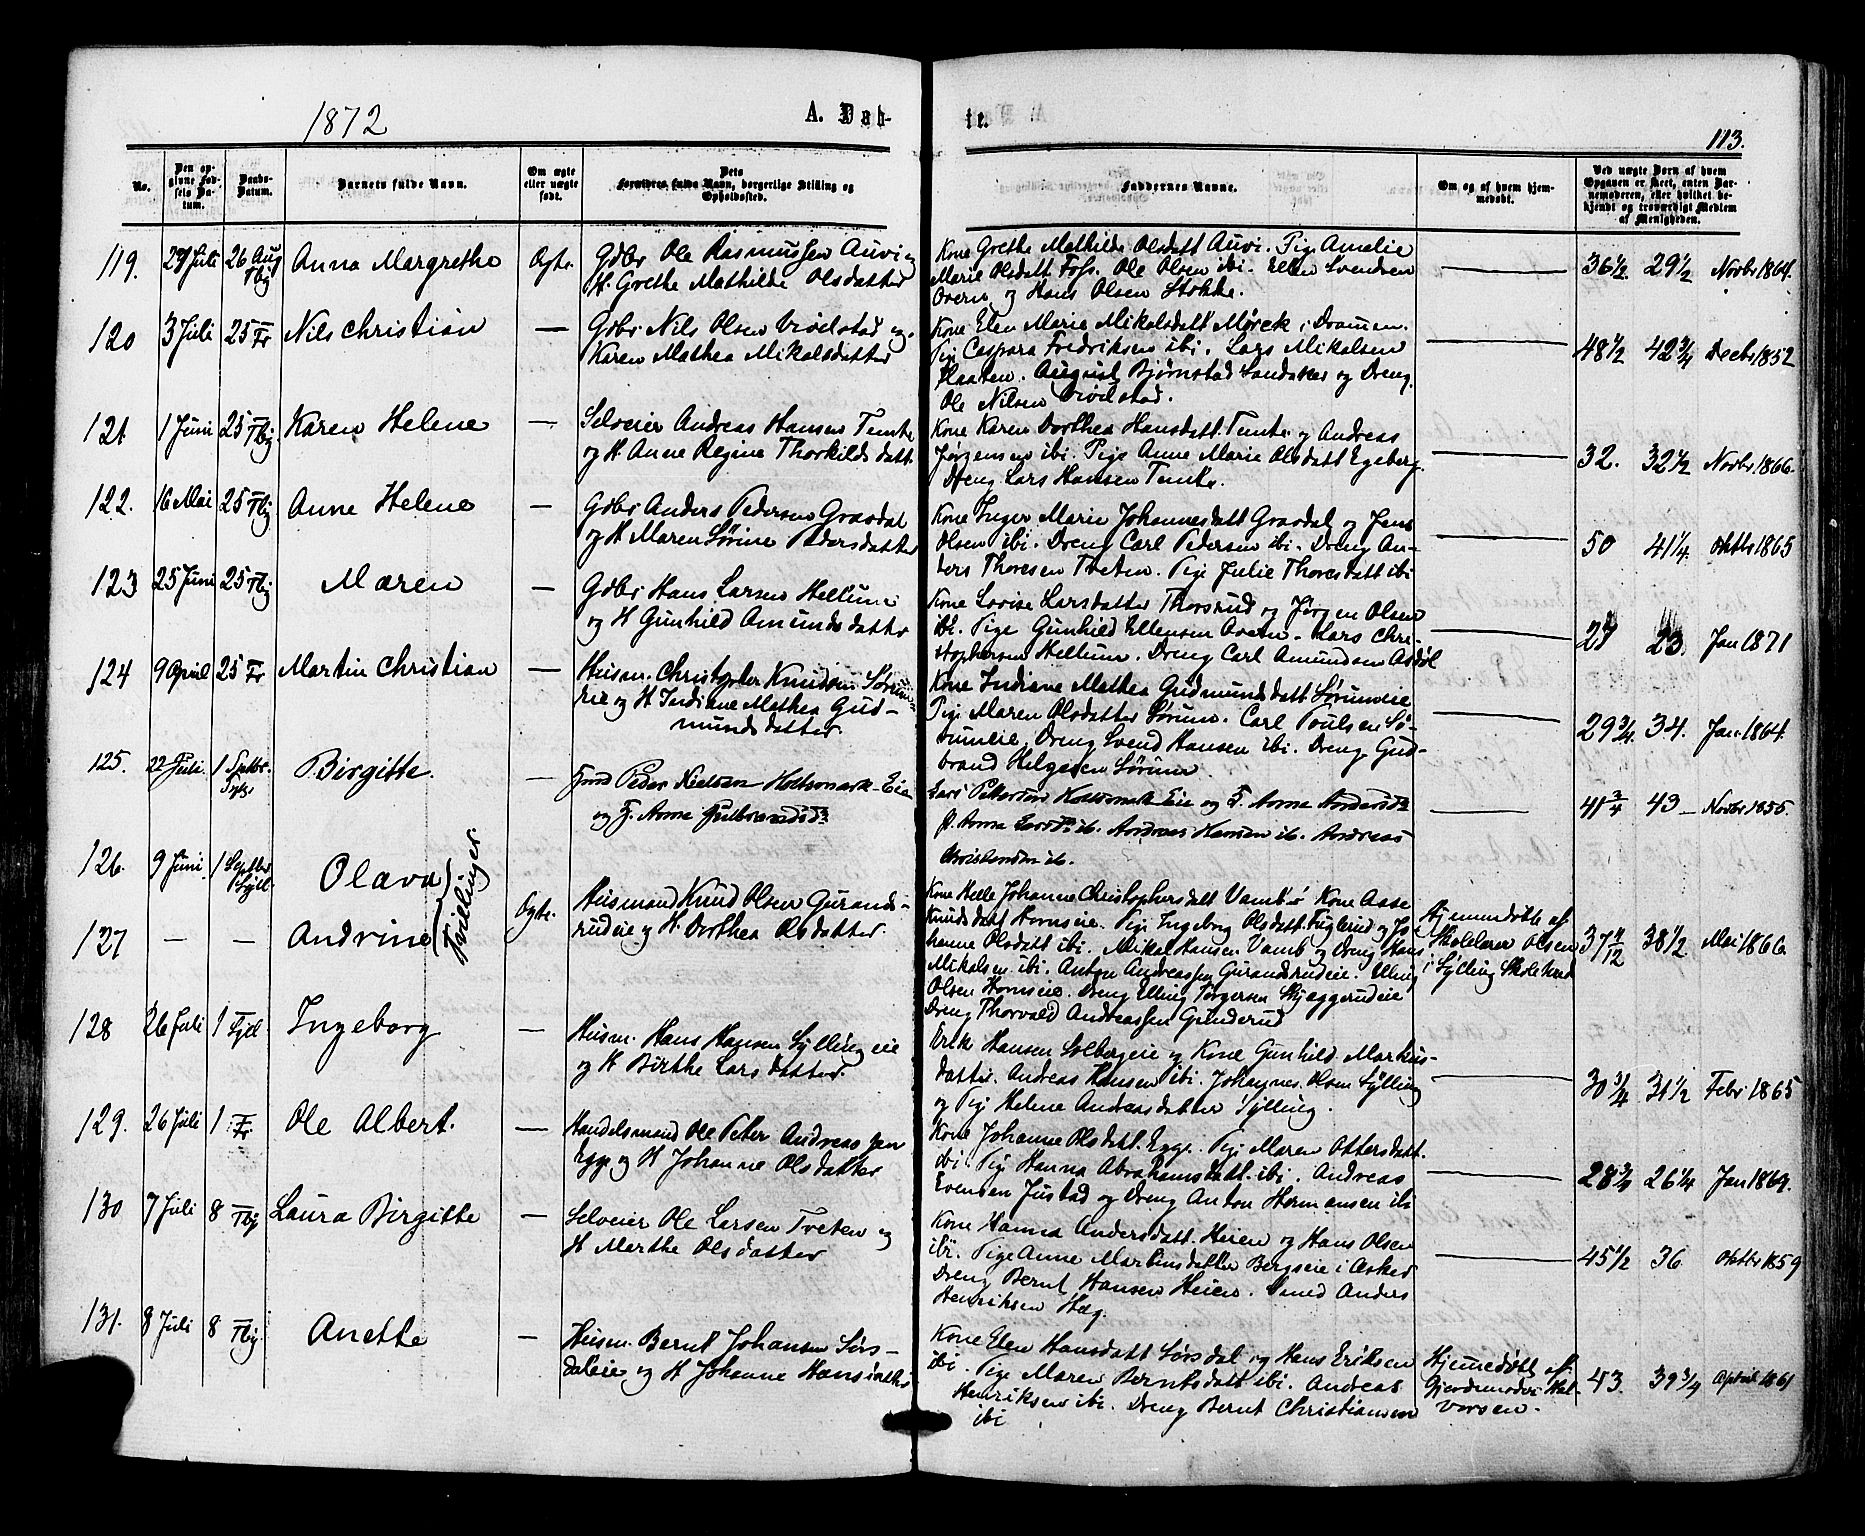 1872
A. Døb-
te.
113.
No.
Den op-
givne Fød-
sels Da-
tum.
Daabs-
Datum.
Barnets fulde Navn.
Om ægte
eller uægte
født.
Dets
Forældres fulde Navn, borgerlige Stilling og
Opholdssted.
Faddernes Navne.
Om og af hvem hjem-
medøbt.
Ved uægte Børn af hvem
Opgaven er skeet, enten Bar-
nemoderen, eller hvilket be-
kjendt og troværdigt Medlem
af Menigheden.
119. 29 Juli 26 Aug Tbg Anna Margrethe Ægte. Gdbr Ole Rasmussen Auvi og
H. Grethe Mathilde Olsdatter
Kone Grethe Mathilde Olsdatt Auvi. Pige Amelie
Marie Olsdatt Foss. Ole Olsen ibi. Ellen Svendsen
Overn og Hans Olsen Stokke.
36½ 29½ Novbr 1864.
120 3 Juli 25 Fr Nils Christian — Gdbr Nils Olsen Vivelstad og
Karen Mathea Mikalsdatter
Kone Elen Marie Mikalsdatt Mørck i Dramen.
Pige Caspara Fredriksen ibi. Lars Mikalsen
Plaaten. August Bjørnstad Sandaker og Dreng
Ole Nilsen Vivelstad.
48½ 42¾ Decbr 1852
121. 1 Juni 25 Tbg Karen Helene — Selveier Andreas Hansen Temte
og H Anne Regine Thorkildsdatt.
Kone Karen Dorthea Hansdatt Temte og Andreas
Jørgensen ibi. Pige Anne Marie Olsdatt Egeberg.
Dreng Lars Hansen Temte.
32. 32½ Novbr 1866.
122. 16 Mai 25 Tbg Anne Helene — Gdbr Anders Pedersen Graadal
og H Maren Sørine Pedersdatter
Kone Inger Marie Johannesdatt Graadal og Jens
Olsen ibi. Dreng Carl Pedersen ibi. Dreng An-
ders Thoresen Tveten. Pige Julie Thoresdatt ibi
50 41¼. Oktbr 1865
123 25 Juni 25 Tbg Maren — Gdbr Hans Larsen Hellum
og H Gunhild Amundsdatter
Kone Lovise Larsdatter Thorsrud og Jørgen Olsen
ibi. Pige Gunhild Ellensen Overn. Lars Chri-
stophersen Hellum. Dreng Carl Amundsen Asdøl
27 23. Jan 1871
124 9 April 25 Fr Martin Christian — Husm. Christopher Knudsen Sørum-
eie og H Indiane Mathea Gud-
mundsdatter.
Kone Indiane Mathea Gudmundsdatt Sørumeie
Pige Maren Olsdatter Sørum. Carl Poulsen Sø-
rumeie, Dreng Svend Hansen ibi. Dreng Gud-
brand Helgesen Sørum.
29¾ 34. Jan 1864.
125. 22 Juli. 1 Septbr. Sylg. Birgitte. — Peder Nielsen Holtsmark-Eie
og F. Anne Gulbrandsd:
Lars Pettersen Holtsmark-Eie og F. Anne Andersd:
P. Anne Larsd: ib. Andreas Hansen ib. Andreas
Christensen ib.
41¾ 43 — Novbr 1855.
126. 9 Juni. 1 Septbr Sylg. Olava
127 — — Andrine
Tvillinger.
Ægte. Husmand Knud Olsen Gurands-
rudeie og H. Dorthea Olsdatter.
Kone Helle Johanne Christophersdatt Vamb. Kone Aase
Knudsdatt Hornseie. Pige Ingeborg Olsdatt Fuglerud og Jo-
hanne Olsdatt ibi. Mikal Hansen Vamb og Dreng Hans
Mikalsen ibi. Anton Andreassen Gurandsrudeie. Elling
Olsen Hornseie. Dreng Elling Torgersen Skjeggerudeie
Dreng Thorvald Andreassen Gunderud
Hjemmedøbte af
Skolelærer Olsen
i Sylling Skolekreds
37 4/12 38½ Mai 1866.
128 26 Juli 1 Sylg Ingeborg — Husm. Hans Hansen Syllingeie
og H Birthe Larsdatter.
Erik Hansen Solbergeie og Kone Gunhild Markus-
datter. Andreas Hansen ibi. Johannes Olsen Sylling
og Pige Helene Andreasdatter Sylling.
30¾ 31½ Febr 1865
129. 26 Juli 1 Fr Ole Albert. — Handelsmand Ole Peter Andreassen
Egge og H Johanne Olsdatter
Kone Johanne Olsdatt. Egge. Pige Maren Ottersdatt.
ibi. Pige Hanna Abrahamsdatt ibi. Andreas
Evensen Justad og Dreng Anton Hermansen ibi
28¾ 26¼ Jan 1869.
130 7 Juli 8 Tbg Laura Birgitte — Selveier Ole Larsen Tveten og
H Marthe Olsdatter
Kone Hanna Andersdatt. Heien og Hans Olsen
ibi. Pige Anne Martinsdatter Bergseie i Asker
Dreng Bernt Hansen Heien. Smed Anders
Henriksen Hæg.
45½ 36 Oktbr 1859
131. 8 Juli 8 Tbg. Anette — Husm. Bernt Johansen Sørs-
daleie og H Johanne Hansdatter
Kone Elen Hansdatt Sørsdal og Hans Eriksen
ibi. Pige Maren Berntsdatt ibi. Andreas
Henriksen ibi. Dreng Bernt Christiansen
ibi
Hjemmedøbt af
Gjordemoder Hal-
vorsen.
43. 39¾ April 1861